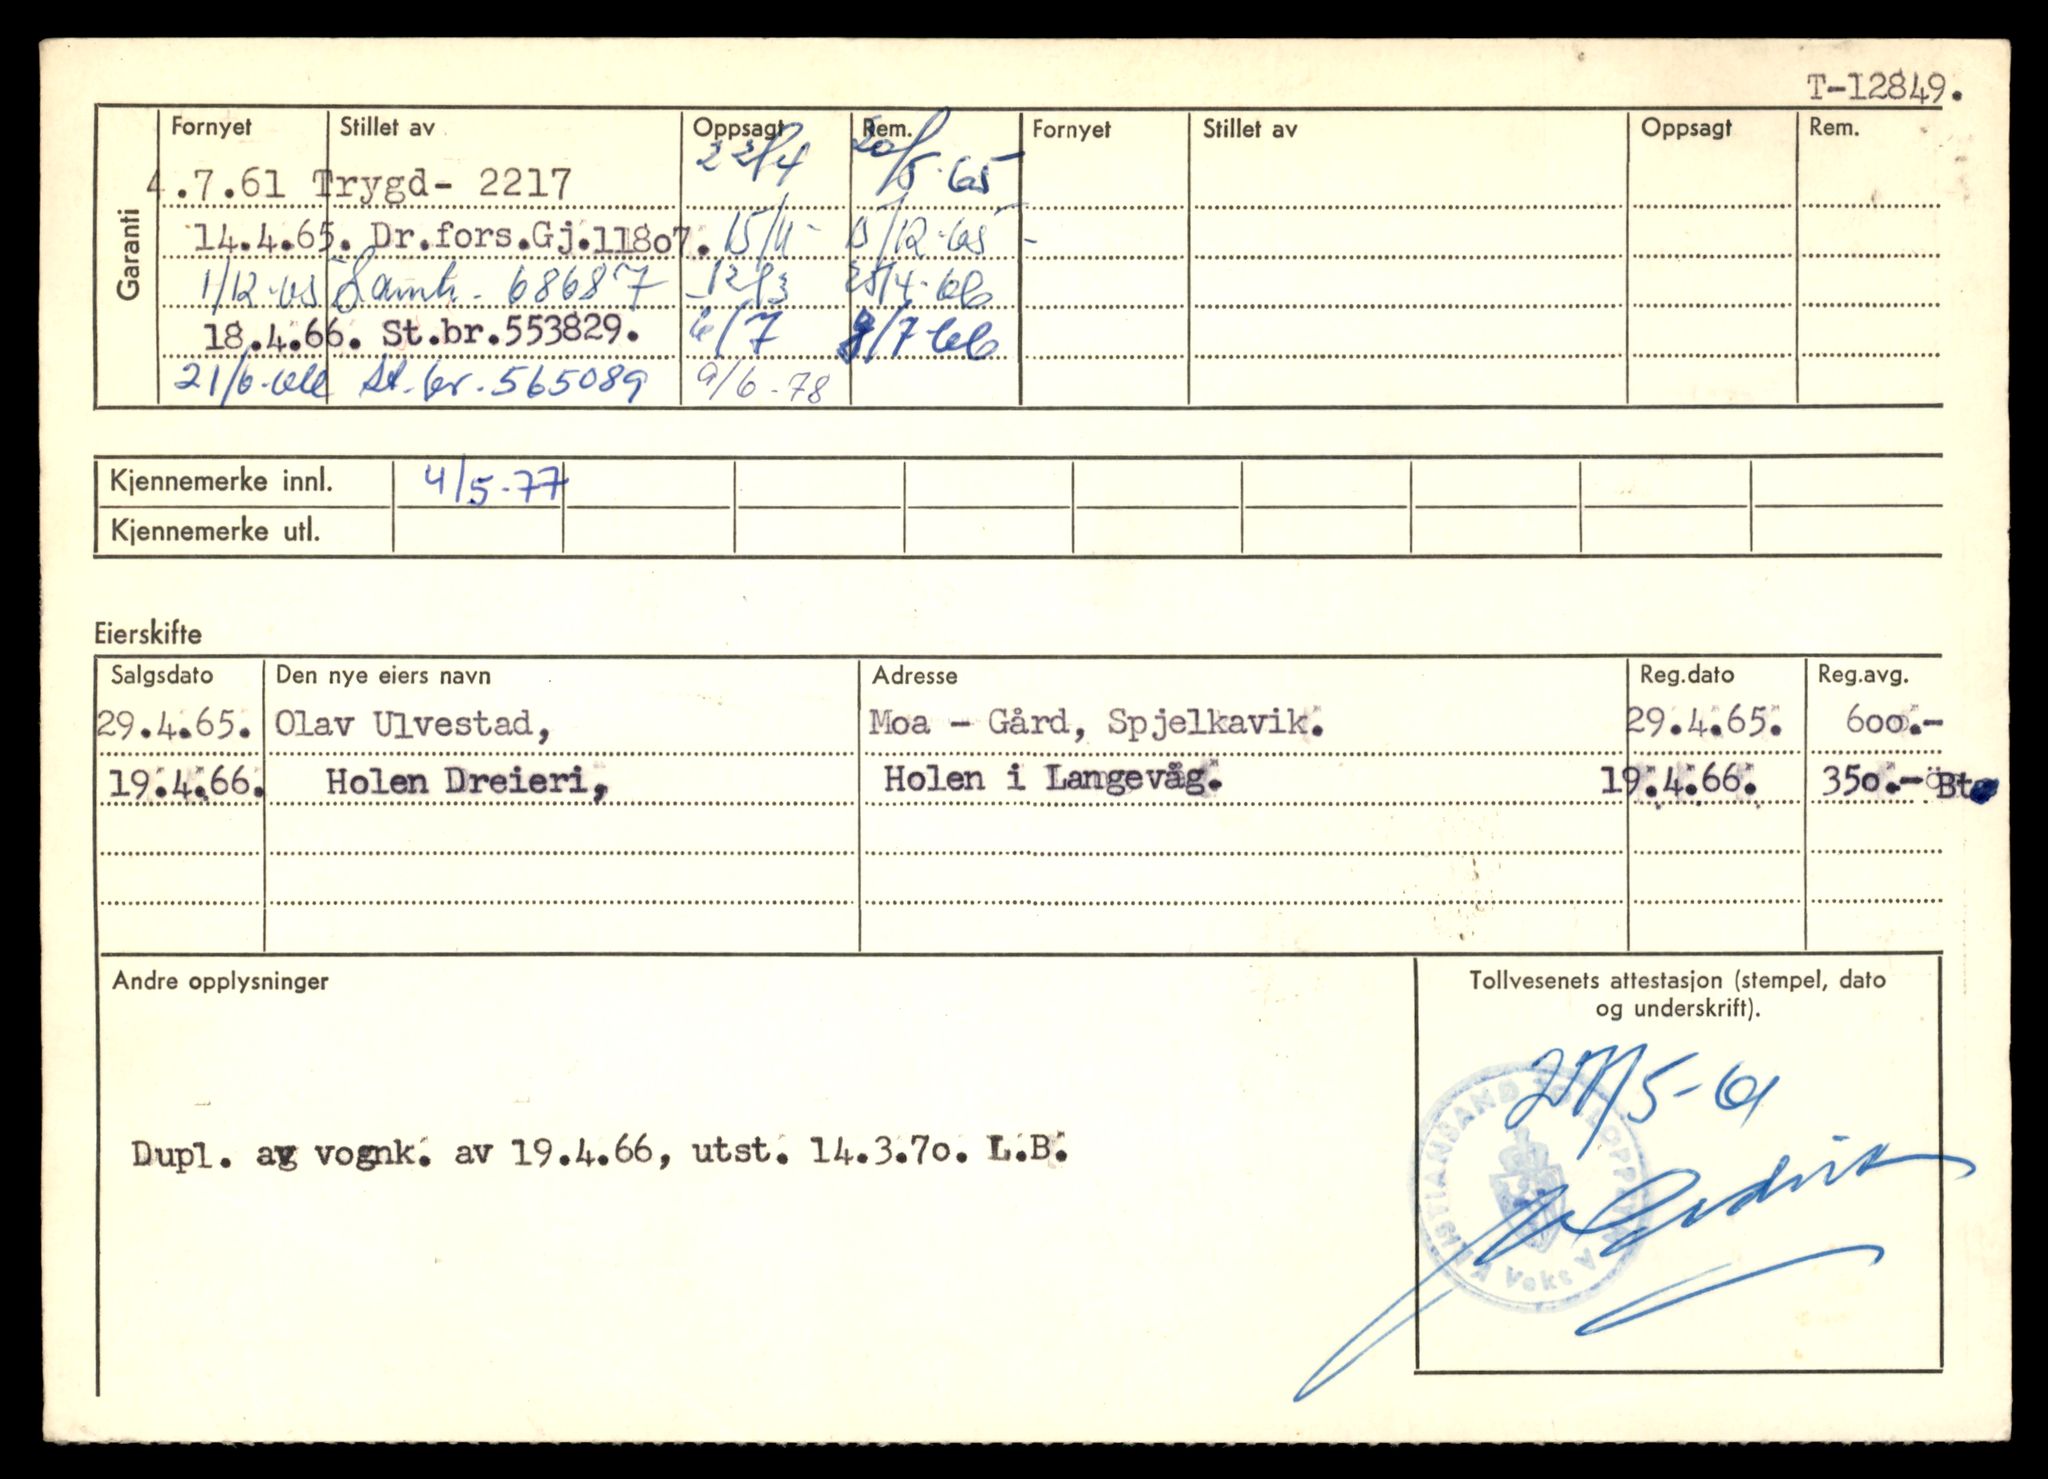 T-12849.
Garanti
Fornyet Stillet av Oppsagt Rem. Fornyet Stillet av Oppsagt Rem.
4.7.61 Trygd- 2217 22/4 20/5-65
14.4.65. Dr.fors.Gj.118o7. 15/11- 15/12-65-
1/12-65 Samtr. 68687 12/3 25/4-66
18.4.66. St.br.553829. 6/7 8/7-66
21/6-66 St.br.565089 9/6-78
Kjennemerke innl. 4/5-77
Kjennemerke utl.
Eierskifte
Salgsdato Den nye eiers navn Adresse Reg.dato Reg.avg.
29.4.65. Olav Ulvestad, Moa - Gård, Spjelkavik. 29.4.65. 6oo.-
19.4.66. Holen Dreieri, Holen i Langevåg. 19.4.66. 35o.- Bt
Andre opplysninger
Tollvesenets attestasjon (stempel, dato
og underskrift).
27/5-61
Dupl. av vognk. av 19.4.66, utst. 14.3.7o. L.B.